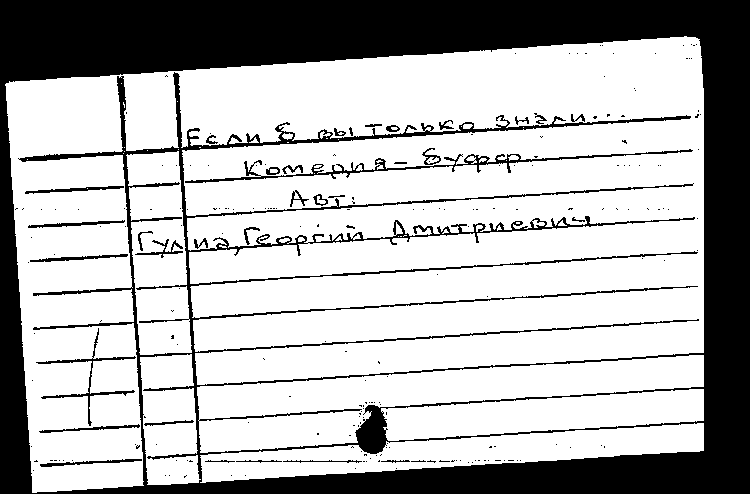 Если б вы только знали...
Комедия-буфф.
Авт:
Гулиа, Георгий Дмитриевич